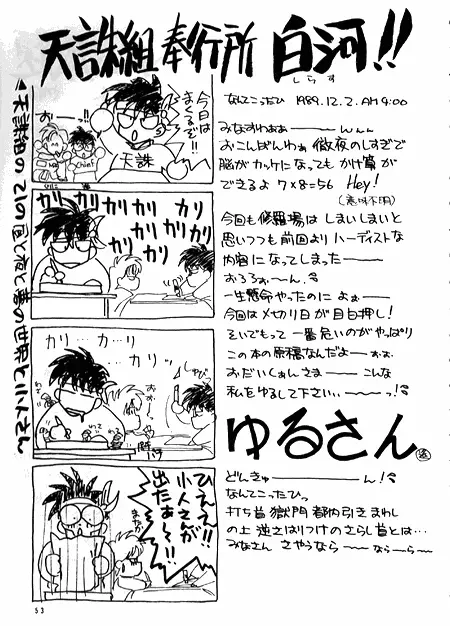 天誅組 奉行所 白河!!
しらす
◀天誅組の21の昼と夜と夢の世界と小人さん
今日は
まくるぞ!!
おーっ!!
天誅
Chief
カリ カリ
カリ カリ
カリ カリ
カリ
カリ…カリ…
カリ…カリッ
しゃび
おおーっ
わて
わて
ひえぇ!!
小人さんが
出たぁ〜!!
なんてこったひ 1989.12.2.AM9:00
みなすわぁぁーんんん
おこんばんわぁ 徹夜のしすぎで
脳がカッケになっても かけ算が
できるよ 7×8=56 Hey!
(意味不明)
今回も修羅場は しまいしまいと
思いつつも前回より ハーディストな
内容になってしまったー
おろろぉ〜ん。
一生懸命やったのに よぉー
今回はメカの日が目白押し!
そいでもって 一番危いのがやっぱり
この本の原稿なんだよー ぉぉ.
おだいじん さまー こんな
私をゆるして下さい、ーっ!
ゆるさん
どんきゅーん!
なんてこったひっ
打ち首 獄門 都内引きまわし
の上 逆さはりつけの さらし首とは…
みなさん さやうなら ーならーらー
53